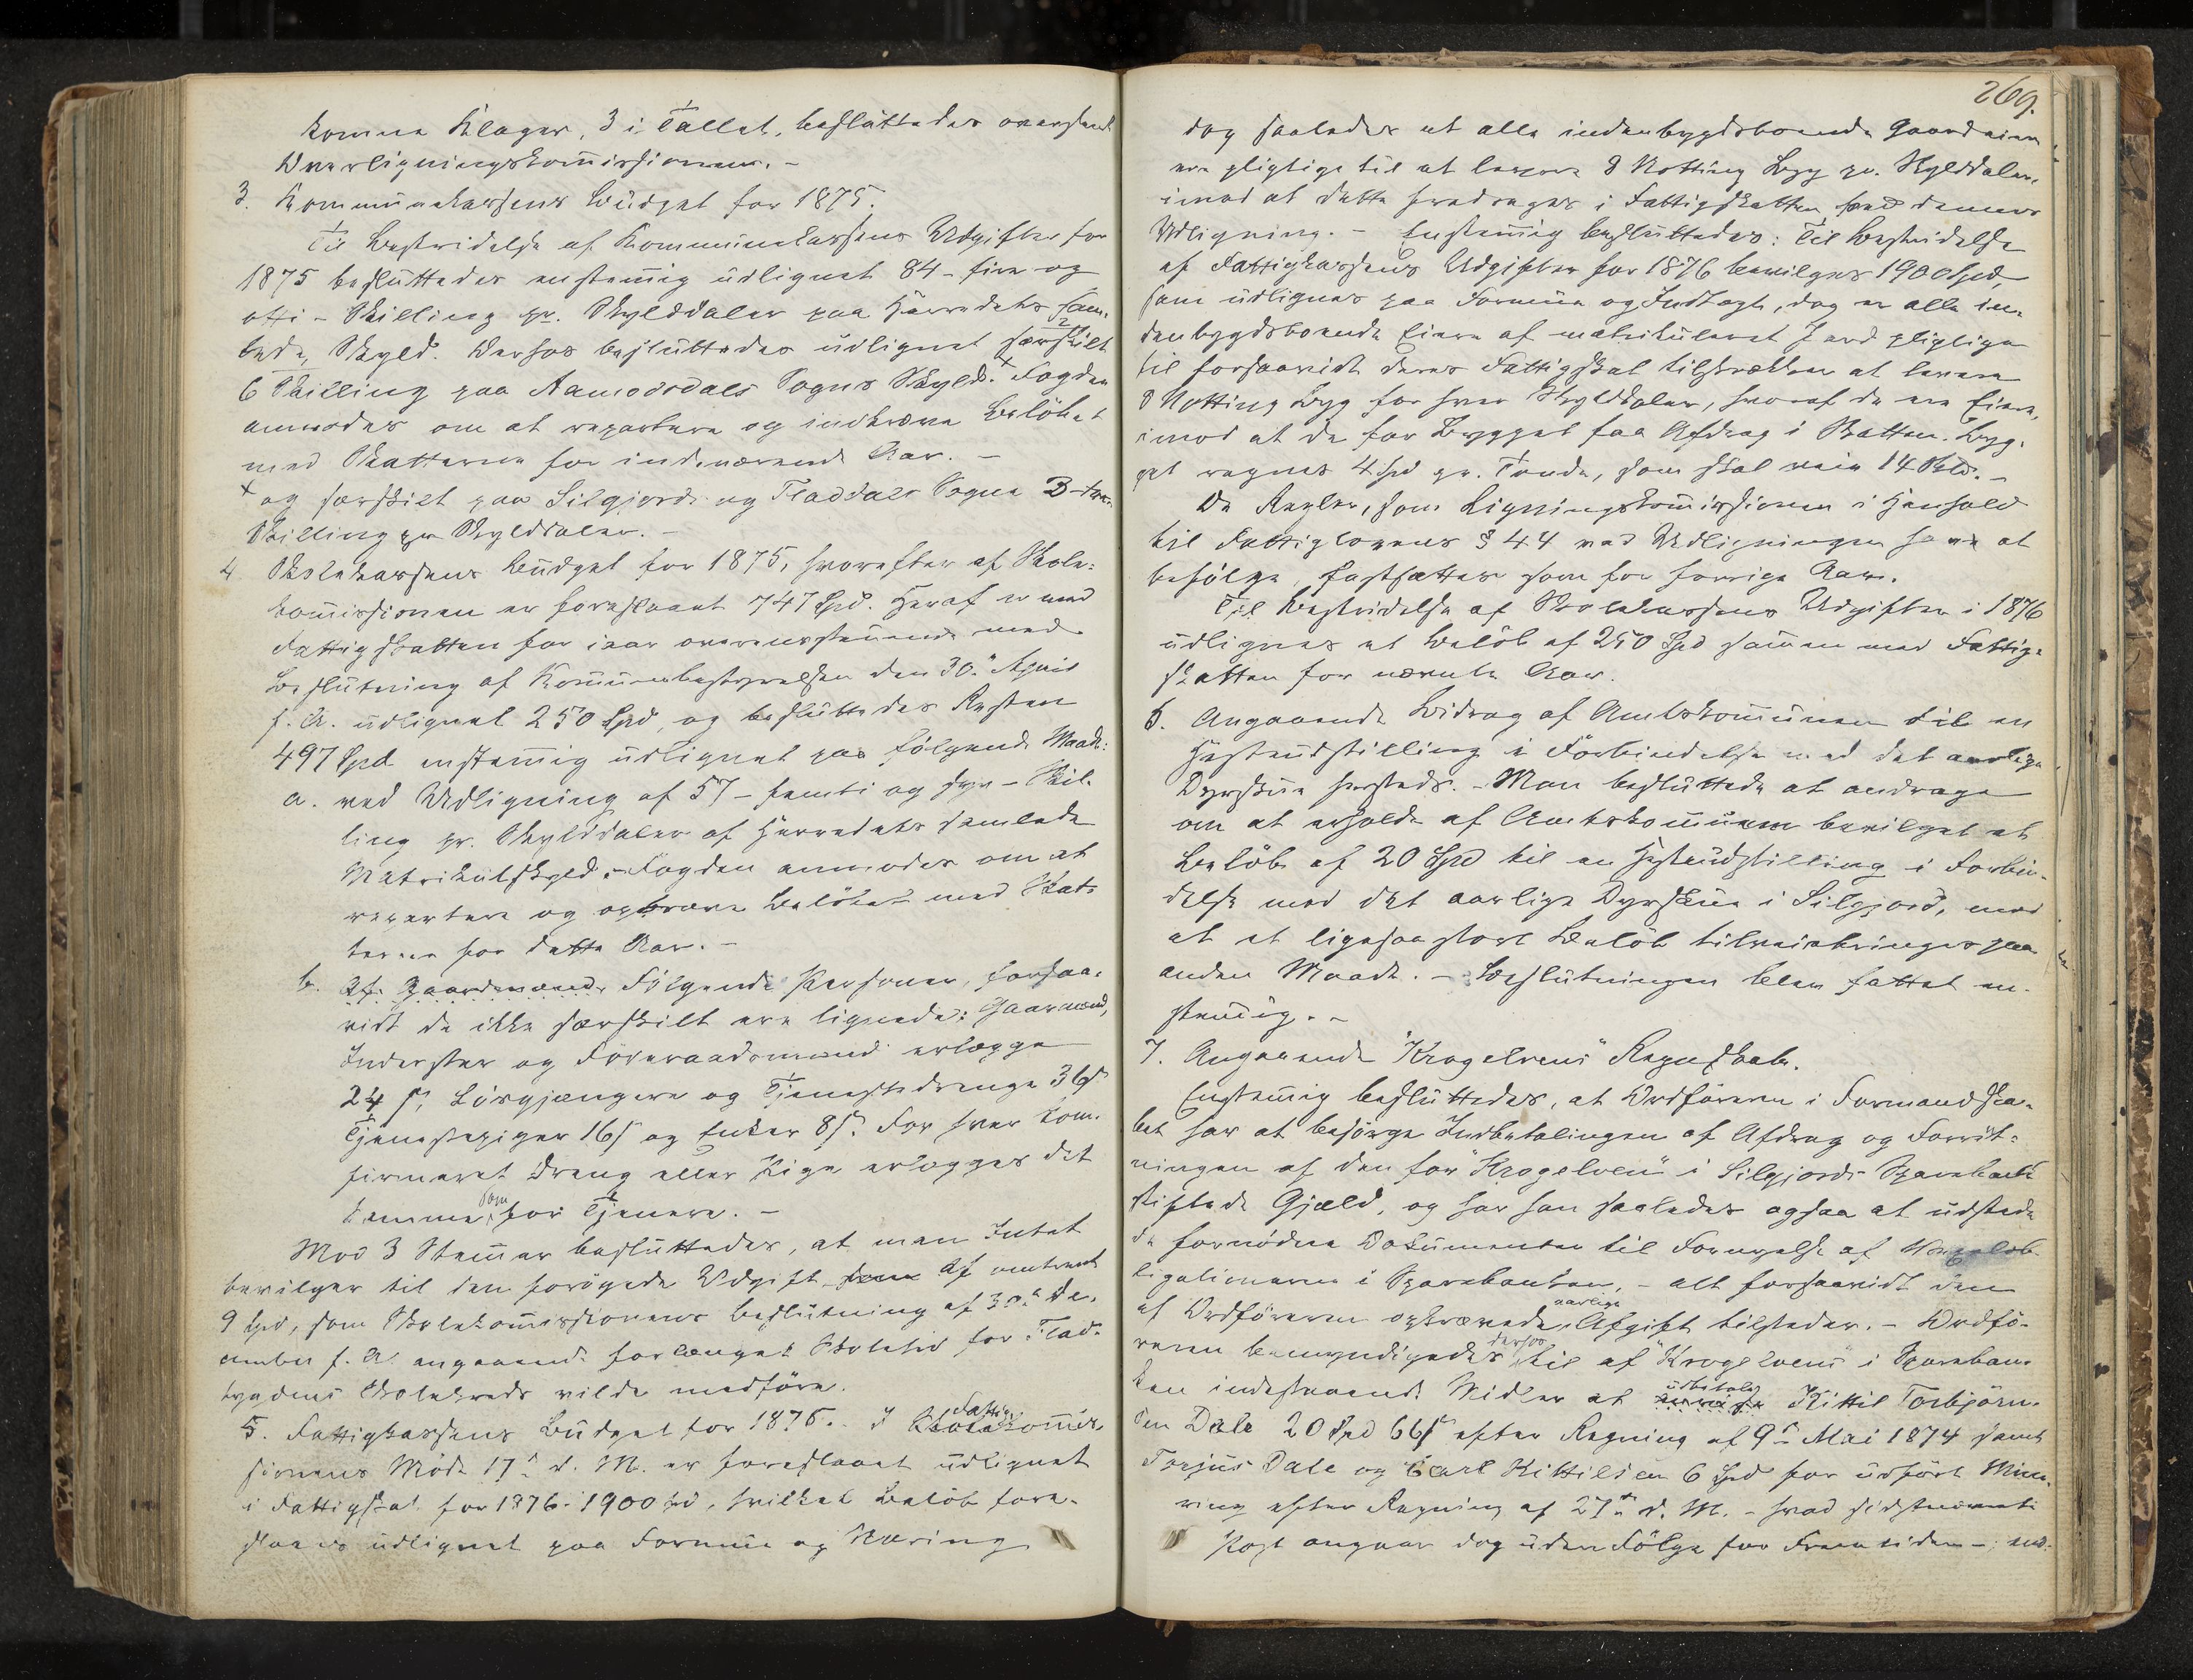 komne Klager, 3 i Tallet, besluttedes oversendt
Overligningskommissionen. –
3. Kommunekassens Budget for 1875.
Til Bestridelse af Kommunekassens Udgifter for
1875 besluttedes enstemmig udlignet 84 – fire og
otti – Skilling pr. Skylddaler paa Herredets sam-
lede Skyld. Derhos besluttedes udlignet særskilt
6 Skilling paa Aamodsdals Sogns Skyld. x Fogden
anmodes om at repartere og indkræve Beløbet
med Skatterne for indeværende Aar. –
x og særskilt paa Silgjords og Fladdals Sogne 3 – tre –
Skilling pr Skylddaler. –
4. Skolekassens Budget for 1875, hvorefter af Skole-
kommissionen er foreslaaet 747 Spd. Heraf er med
Fattigskatten for iaar overensstemmende med
Beslutning af Kommunebestyrelsen den 30te April
f. A. udlignet 250 Spd, og besluttedes Resten
497 Spd enstemmig udlignet paa følgende Maade:
a. ved Udligning af 57 – femti og syv – Skil-
ling pr. Skylddaler af Herredets samlede
Matrikulskyld. – Fogden anmodes om at
repartere og opkræve Beløbet med Skat-
terne for dette Aar. –
b. Af Gaardmænd. Følgende Personer, forsaa-
vidt de ikke særskilt ere lignede: Gaarmænd,
Inderster og Föderaadsmænd erlægge
24 ß, Løsgjængere og Tjenestedrenge 36 ß
Tjenestepiger 16 ß og Enker 8 ß. For hver kon-
firmeret Dreng eller Pige erlægges det
samme som for Tjenere. –
Mod 3 Stemmer besluttedes, at man Intet
bevilger til den forøgede Udgift af omtrent
9 Spd, som Skolekommissionens Beslutning af 30te De-
cember f. A. angaaende forlænget Skoletid for Flad-
bygdens Skolekreds vilde medføre.
5. Fattigkassens Budget for 1876. – I Fattigkommis-
sionens Møde 17de d. M. er foreslaaet udlignet
i Fattigskat for 1876 – 1900 Spd, hvilket Beløb fore-
slaaes udlignet paa Formue og Næring
269.
dog saaledes at alle indenbygdsboende Gaardeiere
ere pligtige til at levere 8 Notting Byg pr. Skylddaler,
imod at dette fradrages i Fattigskatten ved dennes
Udligning. – Enstemmig besluttedes: Til Bestridelse
af Fattigkassens Udgifter for 1876 bevilges 1900 Spd,
som udlignes paa Formue og Indtægt, dog er alle in-
denbygdsboende Eiere af matrikuleret Jord pligtige
til forsaavidt deres Fattigskat tilstrækker at levere
8 Notting Byg for hver Skylddaler, hvoraf de ere Eiere,
imod at de for Bygget faa Afdrag i Skatten. Byg-
get regnes 4 Spd pr. Tønde, som skal veie 14 Bld. –
De Regler, som Ligningskommissionen i Henhold
til Fattiglovens § 44 ved Udligningen have at
befølge, fastsættes som for forrige Aar.
Til Bestridelse af Skolekassens Udgifter i 1876
udlignes et Beløb af 250 Spd sammen med Fattig-
skatten for nævnte Aar.
6. Angaaende Bidrag af Amtskommunen til en
Hesteudstilling i Forbindelse med det aarlige
Dyrskue hersteds. – Man besluttede at andrage
om at erholde af Amtskommunen bevilget et
Beløb af 20 Spd til en Hesteudstilling i Forbin-
delse med det aarlige Dyrskue i Silgjord, mod
at et ligesaa stort Beløb tilveiebringes paa
anden Maade. – Beslutningen blev fattet en-
stemmig. –
7. Angaaende "Krogelvens" Regnskab.
Enstemmig besluttedes, at Ordføreren i Formandska-
bet har at besørge Indbetalingen af Afdrag og Forrent-
ningen af den for "Krogelven" i Silgjords Sparebank
stiftede Gjæld, og har han saaledes ogsaa at udstede
de fornødne Dokumenter til Fornyelse af
ligationerne i Sparebanken, – alt forsaavidt den
aarlige
af Ordføreren opkrævede Afgift tilsteder. – Ordfø-
derhos
reren bemyndigedes til af "Krogelvens" i Spareban-
udbetale
ken indestaaende Midler at Kittil Torbjörn-
sen Dale 20 Spd 66 ß efter Regning af 9de Mai 1874 samt
Torjus Dale og Carl Kittilsen 6 Spd for udført Mine-
ring efter Regning af 27de d. M. – hvad sidstnævnte
Post angaar dog uden Følge for Fremtiden – ; end-